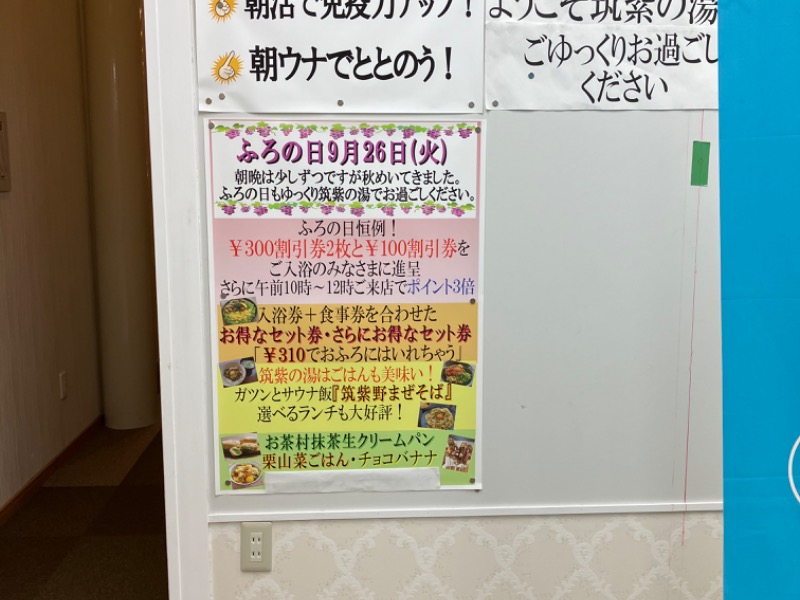 朝活で免疫力アップ!
朝ウナでととのう!
ようこそ筑紫の湯
ごゆっくりお過ごし
ください
ふろの日9月26日(火)
朝晩は少しずつですが秋めいてきました。
ふろの日もゆっくり筑紫の湯でお過ごしください。
ふろの日恒例!
¥300割引券2枚と¥100割引券を
ご入浴のみなさまに進呈
さらに午前10時~12時ご来店でポイント3倍
入浴券+食事券を合わせた
お得なセット券・さらにお得なセット券
「¥310でおふろにはいれちゃう」
筑紫の湯はごはんも美味い!
ガツンとサウナ飯『筑紫野まぜそば』
選べるランチも大好評!
お茶村抹茶生クリームパン
栗山菜ごはん・チョコバナナ